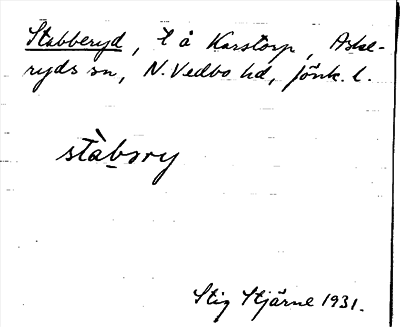 Stabberyd, t å Karstorp, Aske-
ryds sn, N. Vedbo hd, Jönk. l.
stàbəry
Stig Stjärne 1931.